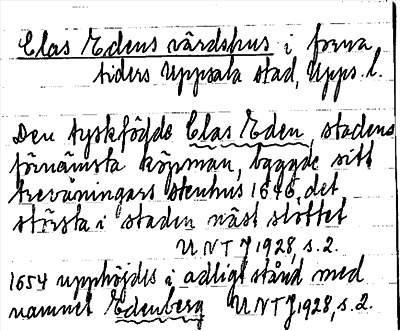 Clas Edens värdshus i forna
tiders Uppsala stad, Upps. l.
Den tyskfödde Clas Eden, stadens
förnämsta köpman, byggde sitt
trevåningars stenhus 1646, det
största i staden näst slottet
UNT J 1928, s. 2.
1654 upphöjdes i adligt stånd med
namnet Edenberg UNT J 1928, s. 2.